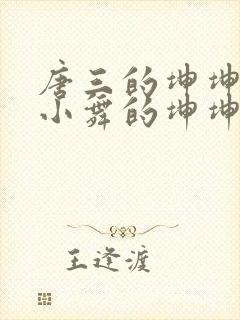 唐三的坤坤
小舞的坤坤
王逢渡